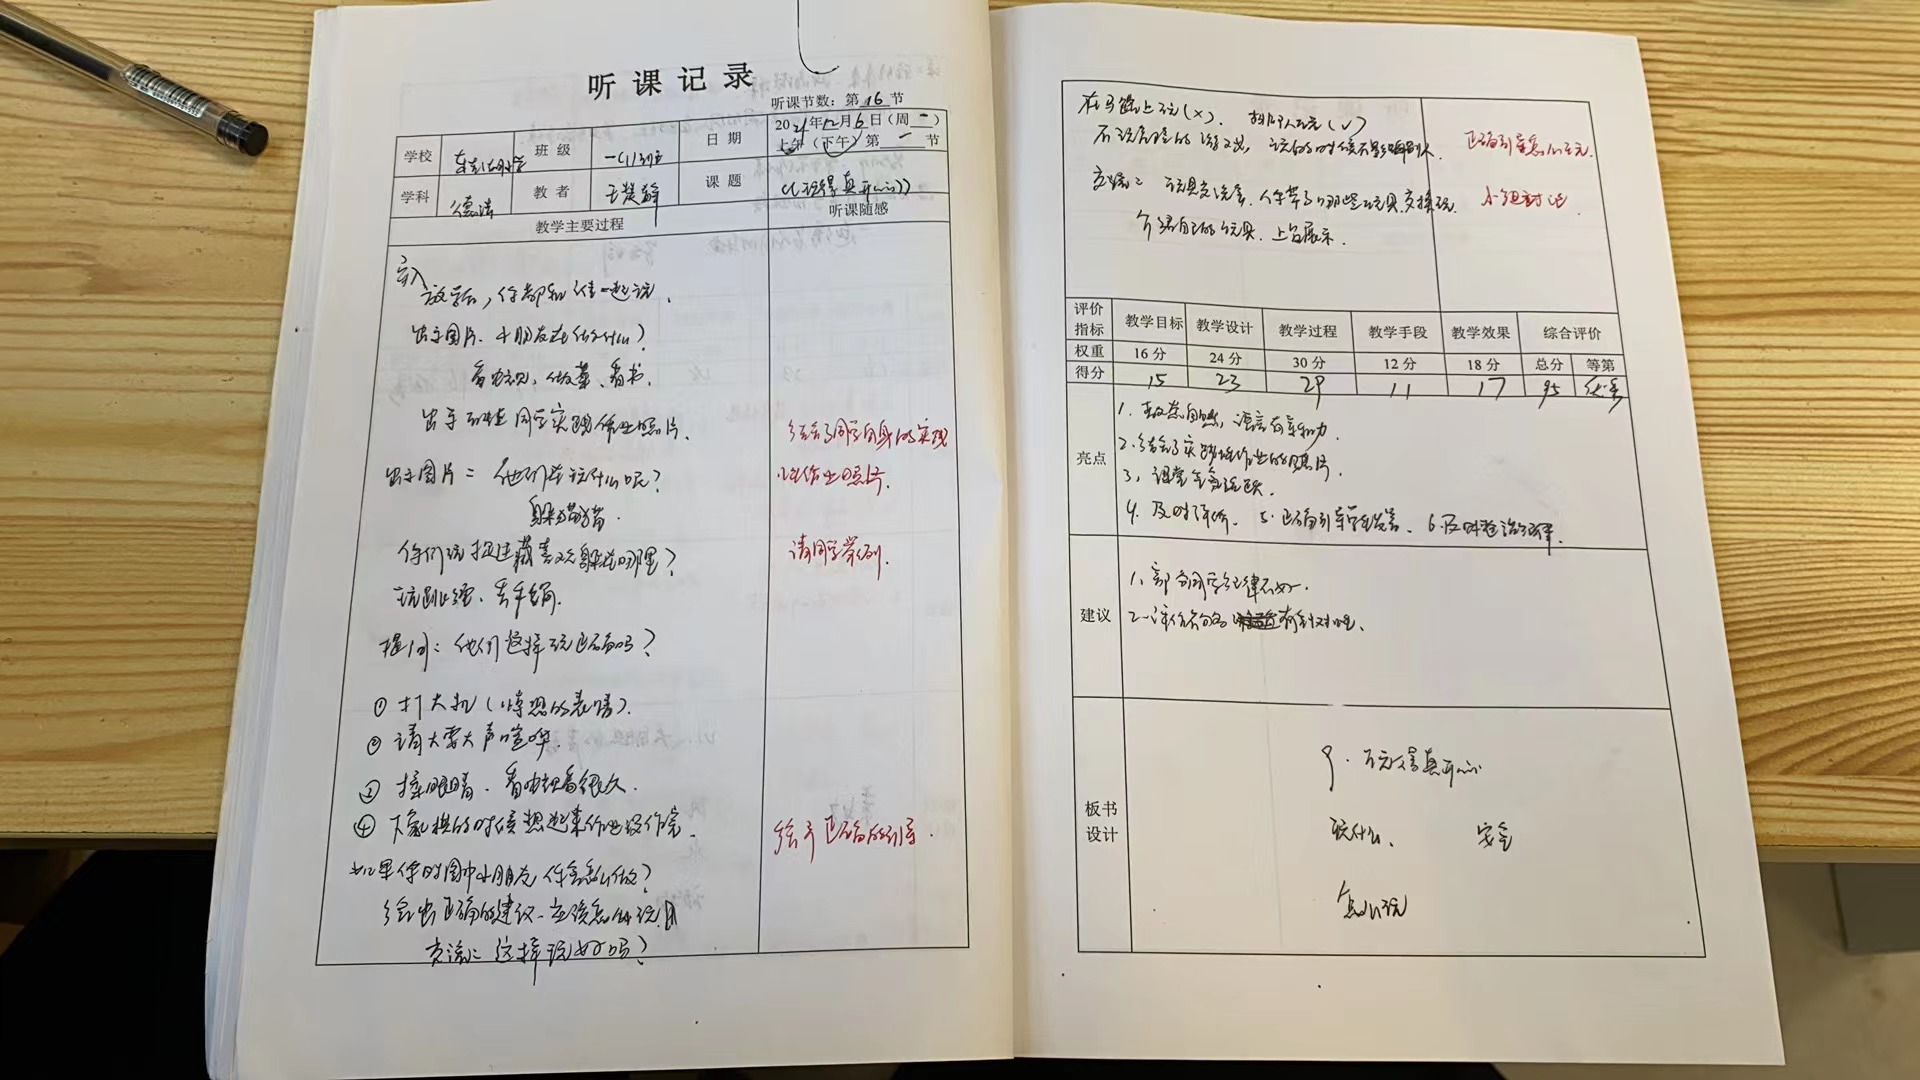 听课记录
听课节数：第 16 节
学校 班级 一(1)班 日期 2021年12月6日（周一）
上午（下午）第一节
学科 德法 教者 课题 《玩得真开心》
教学主要过程 听课随感
导入
放学后，你都和谁一起玩.
出示图片. 小朋友在做什么？
看电视, 做菜、看书.
出示 同学实践作业照片.
结合了同学自身的实践
性作业照片.
出示图片二 他们在玩什么呢？
躲猫猫.
你们玩捉迷藏喜欢躲在哪里？
请同学举例.
玩跳绳、丢手绢.
提问：他们这样玩正确吗？
① 打大扎（ 的表情）.
② 请大要大声喧哗.
③ 揉眼睛. 看电视看很久.
④ 下象棋的时候想起来作业没作完.
给予正确的引导.
如果你时图中小朋友 你会怎么做？
给出正确的建议. 应该怎么玩.
交流二 这样玩好吗？
在马路上玩（×）. 排队玩（√）
正确引导怎么玩.
不玩危险的游戏, 玩的时候不影响别人.
交流二 玩具交流会. 你带了哪些玩具 交换玩.
小组讨论.
介绍自己的玩具. 上台展示.
评价指标 教学目标 教学设计 教学过程 教学手段 教学效果 综合评价
权重 16分 24分 30分 12分 18分 总分 等第
得分 15 23 29 11 17 95 优秀
亮点
1. 教态自然, 语言有亲和力.
2. 结合了实践性作业的照片.
3, 课堂气氛活跃.
4. 及时评价. 5. 正确引导学生发言. 6. 及时整治纪律.
建议
1、部分同学纪律不好.
2、评价 有针对性.
板书设计
9. 玩得真开心
玩什么、 安全
怎么玩